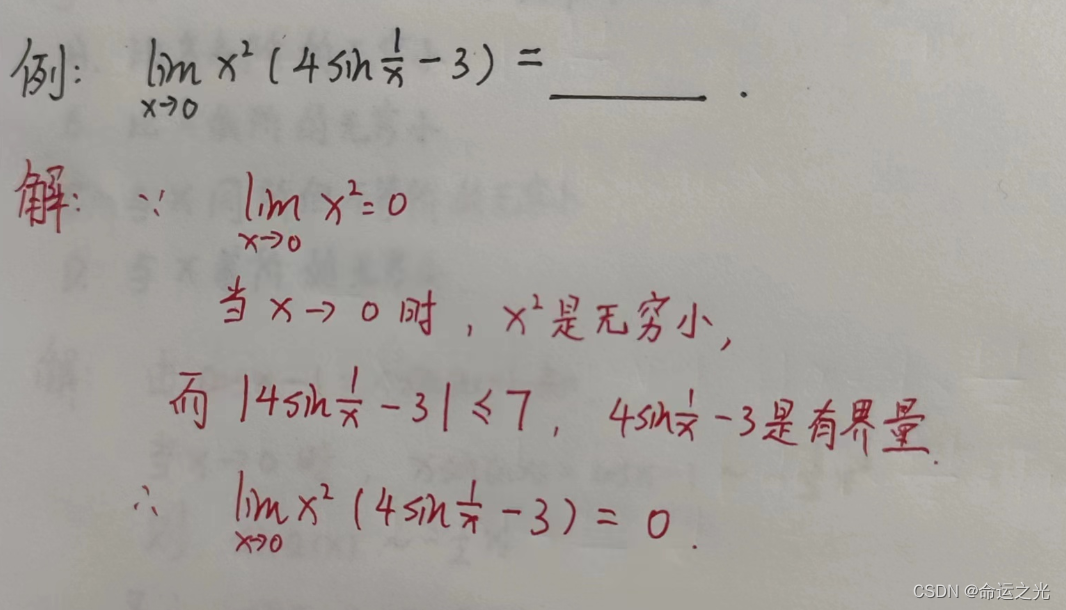 例: lim x→0 x² ( 4 sin 1/x - 3 ) = ______ .
解: ∵ lim x→0 x² = 0
当 x → 0 时, x² 是无穷小,
而 |4 sin 1/x - 3| ≤ 7, 4 sin 1/x - 3 是有界量.
∴ lim x→0 x² ( 4 sin 1/x - 3 ) = 0.
CSDN @命运之光